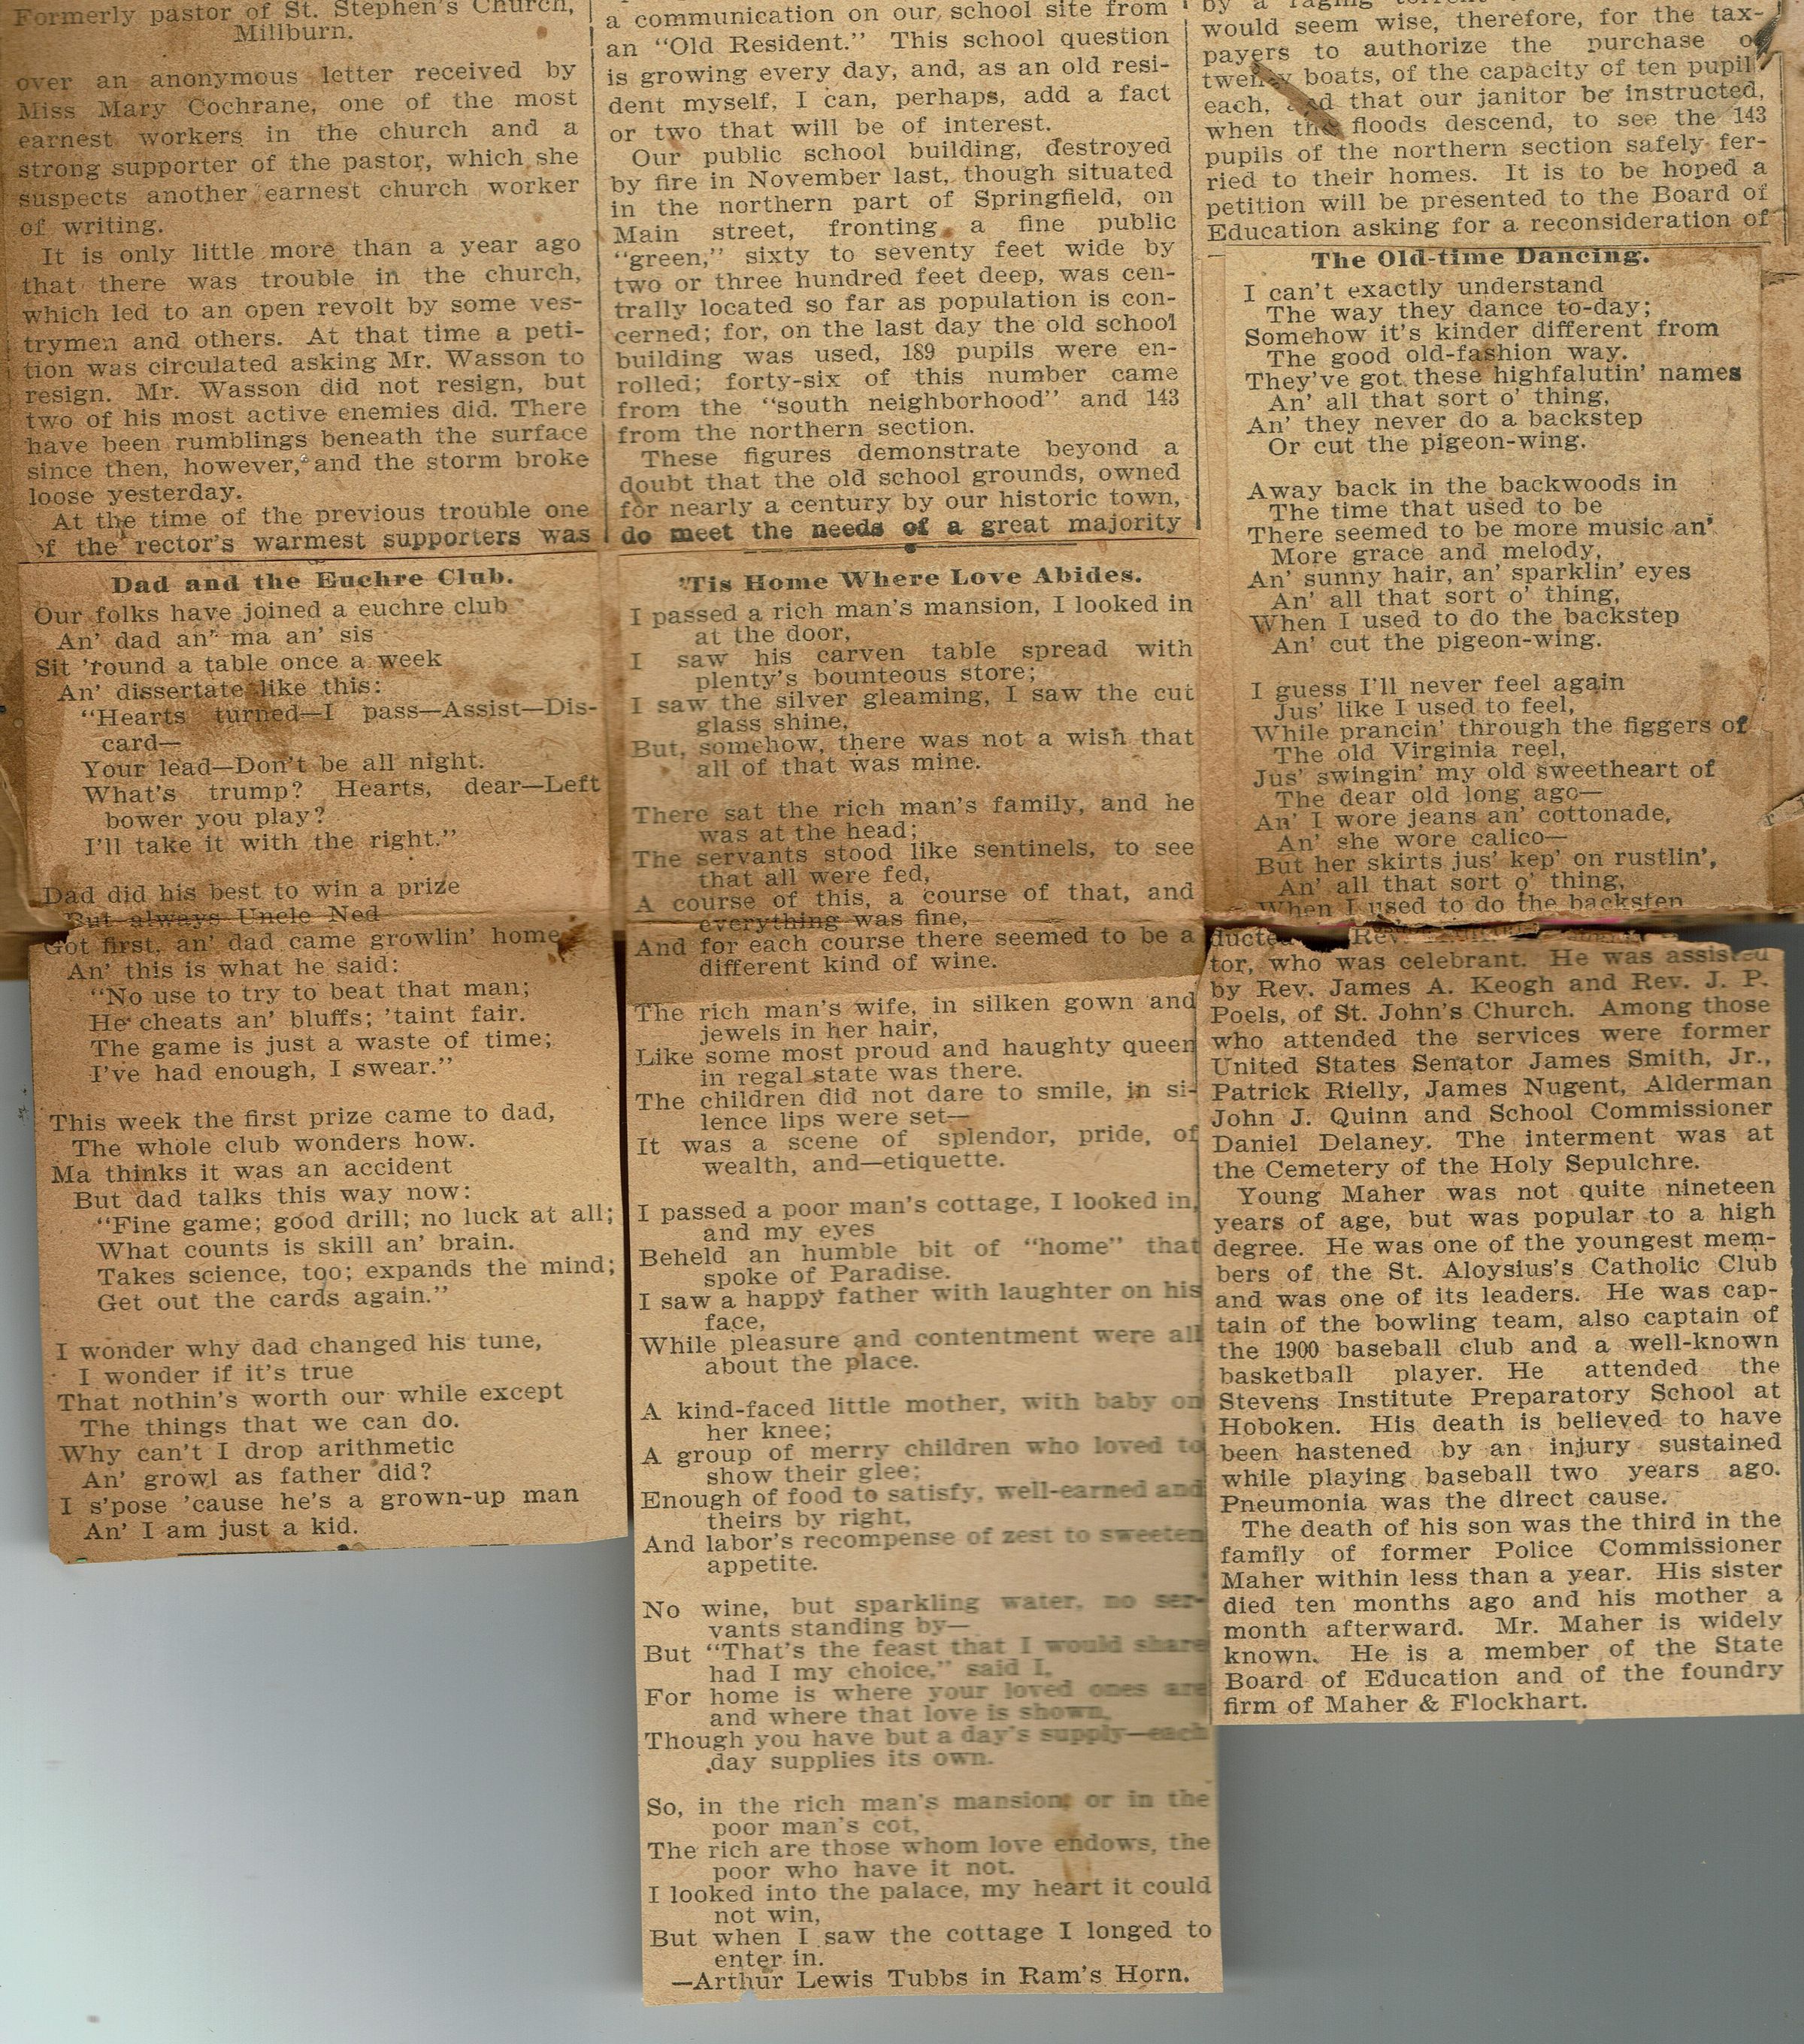 Formerly pastor of St. Stephen's Church,
Millburn.
over an anonymous letter received by
Miss Mary Cochrane, one of the most
earnest workers in the church and a
strong supporter of the pastor, which she
suspects another earnest church worker
of writing.
It is only little more than a year ago
that there was trouble in the church,
which led to an open revolt by some ves-
trymen and others. At that time a peti-
tion was circulated asking Mr. Wasson to
resign. Mr. Wasson did not resign, but
two of his most active enemies did. There
have been rumblings beneath the surface
since then, however, and the storm broke
loose yesterday.
At the time of the previous trouble one
of the rector's warmest supporters was
Dad and the Euchre Club.
Our folks have joined a euchre club
An' dad an' ma an' sis
Sit 'round a table once a week
An' dissertate like this:
"Hearts turned—I pass—Assist—Dis-
card—
Your lead—Don't be all night.
What's trump? Hearts, dear—Left
bower you play?
I'll take it with the right."
Dad did his best to win a prize
But always Uncle Ned
Got first, an' dad came growlin' home
An' this is what he said:
"No use to try to beat that man;
He cheats an' bluffs; 'taint fair.
The game is just a waste of time;
I've had enough, I swear."
This week the first prize came to dad,
The whole club wonders how.
Ma thinks it was an accident
But dad talks this way now:
"Fine game; good drill; no luck at all;
What counts is skill an' brain.
Takes science, too; expands the mind;
Get out the cards again."
I wonder why dad changed his tune,
I wonder if it's true
That nothin's worth our while except
The things that we can do.
Why can't I drop arithmetic
An' growl as father did?
I s'pose 'cause he's a grown-up man
An' I am just a kid.
a communication on our school site from
an "Old Resident." This school question
is growing every day, and, as an old resi-
dent myself, I can, perhaps, add a fact
or two that will be of interest.
Our public school building, destroyed
by fire in November last, though situated
in the northern part of Springfield, on
Main street, fronting a fine public
"green," sixty to seventy feet wide by
two or three hundred feet deep, was cen-
trally located so far as population is con-
cerned; for, on the last day the old school
building was used, 189 pupils were en-
rolled; forty-six of this number came
from the "south neighborhood" and 143
from the northern section.
These figures demonstrate beyond a
doubt that the old school grounds, owned
for nearly a century by our historic town,
do meet the needs of a great majority
'Tis Home Where Love Abides.
I passed a rich man's mansion, I looked in
at the door,
I saw his carven table spread with
plenty's bounteous store;
I saw the silver gleaming, I saw the cut
glass shine,
But, somehow, there was not a wish that
all of that was mine.
There sat the rich man's family, and he
was at the head;
The servants stood like sentinels, to see
that all were fed,
A course of this, a course of that, and
everything was fine,
And for each course there seemed to be a
different kind of wine.
The rich man's wife, in silken gown and
jewels in her hair,
Like some most proud and haughty queen
in regal state was there.
The children did not dare to smile, in si-
lence lips were set—
It was a scene of splendor, pride, of
wealth, and—etiquette.
I passed a poor man's cottage, I looked in,
and my eyes
Beheld an humble bit of "home" that
spoke of Paradise.
I saw a happy father with laughter on his
face,
While pleasure and contentment were all
about the place.
A kind-faced little mother, with baby on
her knee;
A group of merry children who loved to
show their glee;
Enough of food to satisfy, well-earned and
theirs by right,
And labor's recompense of zest to sweeten
appetite.
No wine, but sparkling water, no ser-
vants standing by—
But "That's the feast that I would share
had I my choice," said I,
For home is where your loved ones are
and where that love is shown,
Though you have but a day's supply—each
day supplies its own.
So, in the rich man's mansion, or in the
poor man's cot,
The rich are those whom love endows, the
poor who have it not.
I looked into the palace, my heart it could
not win,
But when I saw the cottage I longed to
enter in.
—Arthur Lewis Tubbs in Ram's Horn.
by a raging torrent
would seem wise, therefore, for the tax-
payers to authorize the purchase of
twenty boats, of the capacity of ten pupils
each, and that our janitor be instructed,
when the floods descend, to see the 143
pupils of the northern section safely fer-
ried to their homes. It is to be hoped a
petition will be presented to the Board of
Education asking for a reconsideration of
The Old-time Dancing.
I can't exactly understand
The way they dance to-day;
Somehow it's kinder different from
The good old-fashion way.
They've got these highfalutin' names
An' all that sort o' thing,
An' they never do a backstep
Or cut the pigeon-wing.
Away back in the backwoods in
The time that used to be
There seemed to be more music an'
More grace and melody,
An' sunny hair, an' sparklin' eyes
An' all that sort o' thing,
When I used to do the backstep
An' cut the pigeon-wing.
I guess I'll never feel again
Jus' like I used to feel,
While prancin' through the figgers of
The old Virginia reel,
Jus' swingin' my old sweetheart of
The dear old long ago—
An' I wore jeans an' cottonade,
An' she wore calico—
But her skirts jus' kep' on rustlin',
An' all that sort o' thing,
When I used to do the backstep
ducted Rev.
tor, who was celebrant. He was assisted
by Rev. James A. Keogh and Rev. J. P.
Poels, of St. John's Church. Among those
who attended the services were former
United States Senator James Smith, Jr.,
Patrick Rielly, James Nugent, Alderman
John J. Quinn and School Commissioner
Daniel Delaney. The interment was at
the Cemetery of the Holy Sepulchre.
Young Maher was not quite nineteen
years of age, but was popular to a high
degree. He was one of the youngest mem-
bers of the St. Aloysius's Catholic Club
and was one of its leaders. He was cap-
tain of the bowling team, also captain of
the 1900 baseball club and a well-known
basketball player. He attended the
Stevens Institute Preparatory School at
Hoboken. His death is believed to have
been hastened by an injury sustained
while playing baseball two years ago.
Pneumonia was the direct cause.
The death of his son was the third in the
family of former Police Commissioner
Maher within less than a year. His sister
died ten months ago and his mother a
month afterward. Mr. Maher is widely
known. He is a member of the State
Board of Education and of the foundry
firm of Maher & Flockhart.